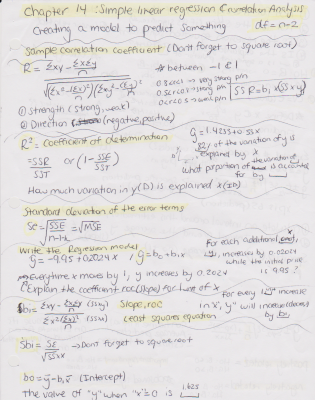 Chapter 14: Simple linear regression & Correlation Analysis
Creating a model to predict something df = n-2
Sample correlation coefficient (Don't forget to square root)
R = Σxy - ΣxΣy/n
√(Σx²-(Σx)²/n)(Σy²-(Σy)²/n)
* between -1 & 1
① Strength (strong, weak)
② Direction (negative, positive)
SSR = b₁ × SSxy
R² = Coefficient of determination
= SSR/SST or (1 - SSE/SST)
ŷ = 1.4233 + 0.55x
82% of the variation of y is
explained by x
What proportion of the variation is accounted
for by
How much variation in y(D) is explained x(ID)
Standard deviation of the error terms
Se = √SSE/n-1-k = √MSE
Write the Regression model
ŷ = -9.95 + 0.2024x, ŷ = b₀ + b₁x
For each additional
increases by 0.2024
while the initial price
is 9.95?
Everytime x moves by 1, y increases by 0.2024
Explain the coefficient, roc (slope) for line of x
b₁ = Σxy - ΣxΣy/n (SSxy)
Σx² - (Σx)²/n (SSxx)
Slope, roc
Least squares equation
For every 1 increase
in "x", "y" will increase (decrease)
by b₁
Sb₁ = Se/√SSxx → Don't forget to square root
b₀ = ȳ - b₁x̄ (Intercept)
The value of "y" when "x" = 0 is 1.425